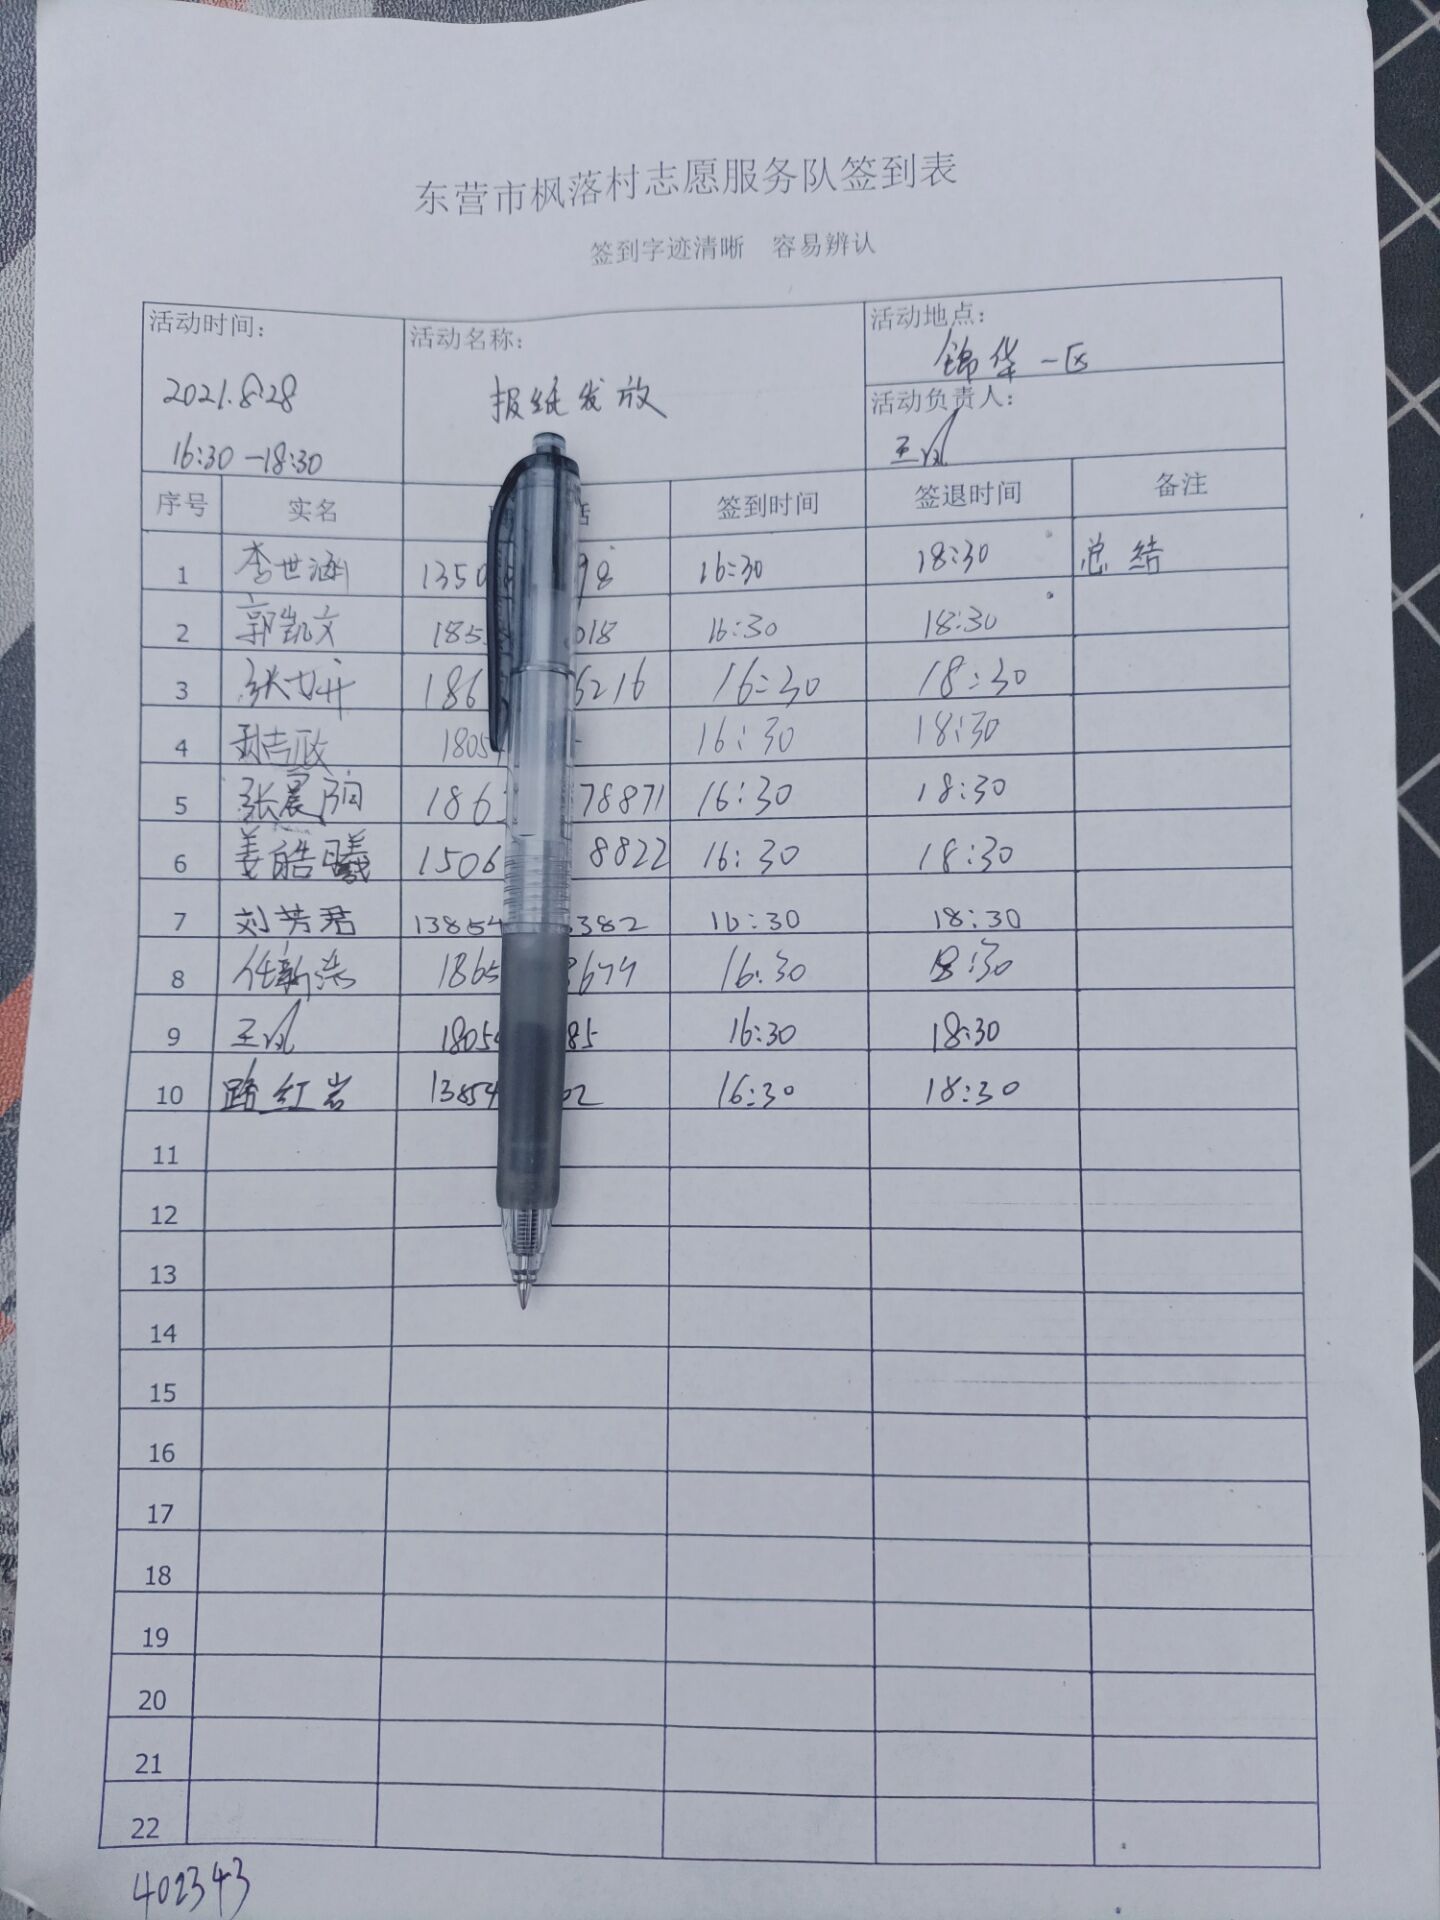 东营市枫落村志愿服务队签到表
签到字迹清晰 容易辨认
活动时间: 活动名称: 活动地点:
锦华一区
2021.8.28 报纸发放 活动负责人:
16:30-18:30 王凤
序号 实名 话 签到时间 签退时间 备注
1 李世涵 1350 98 16:30 18:30 总结
2 郭凯文 185 018 16:30 18:30
3 张女卉 186 6216 16:30 18:30
4 孙吉政 1805 16:30 18:30
5 张晨 186 78871 16:30 18:30
6 姜皓曦 1506 8822 16:30 18:30
7 刘芳君 13854 382 16:30 18:30
8 任新浩 1865 16:30 18:30
9 王凤 1805 85 16:30 18:30
10 路红岩 13854 02 16:30 18:30
11
12
13
14
15
16
17
18
19
20
21
22
402343